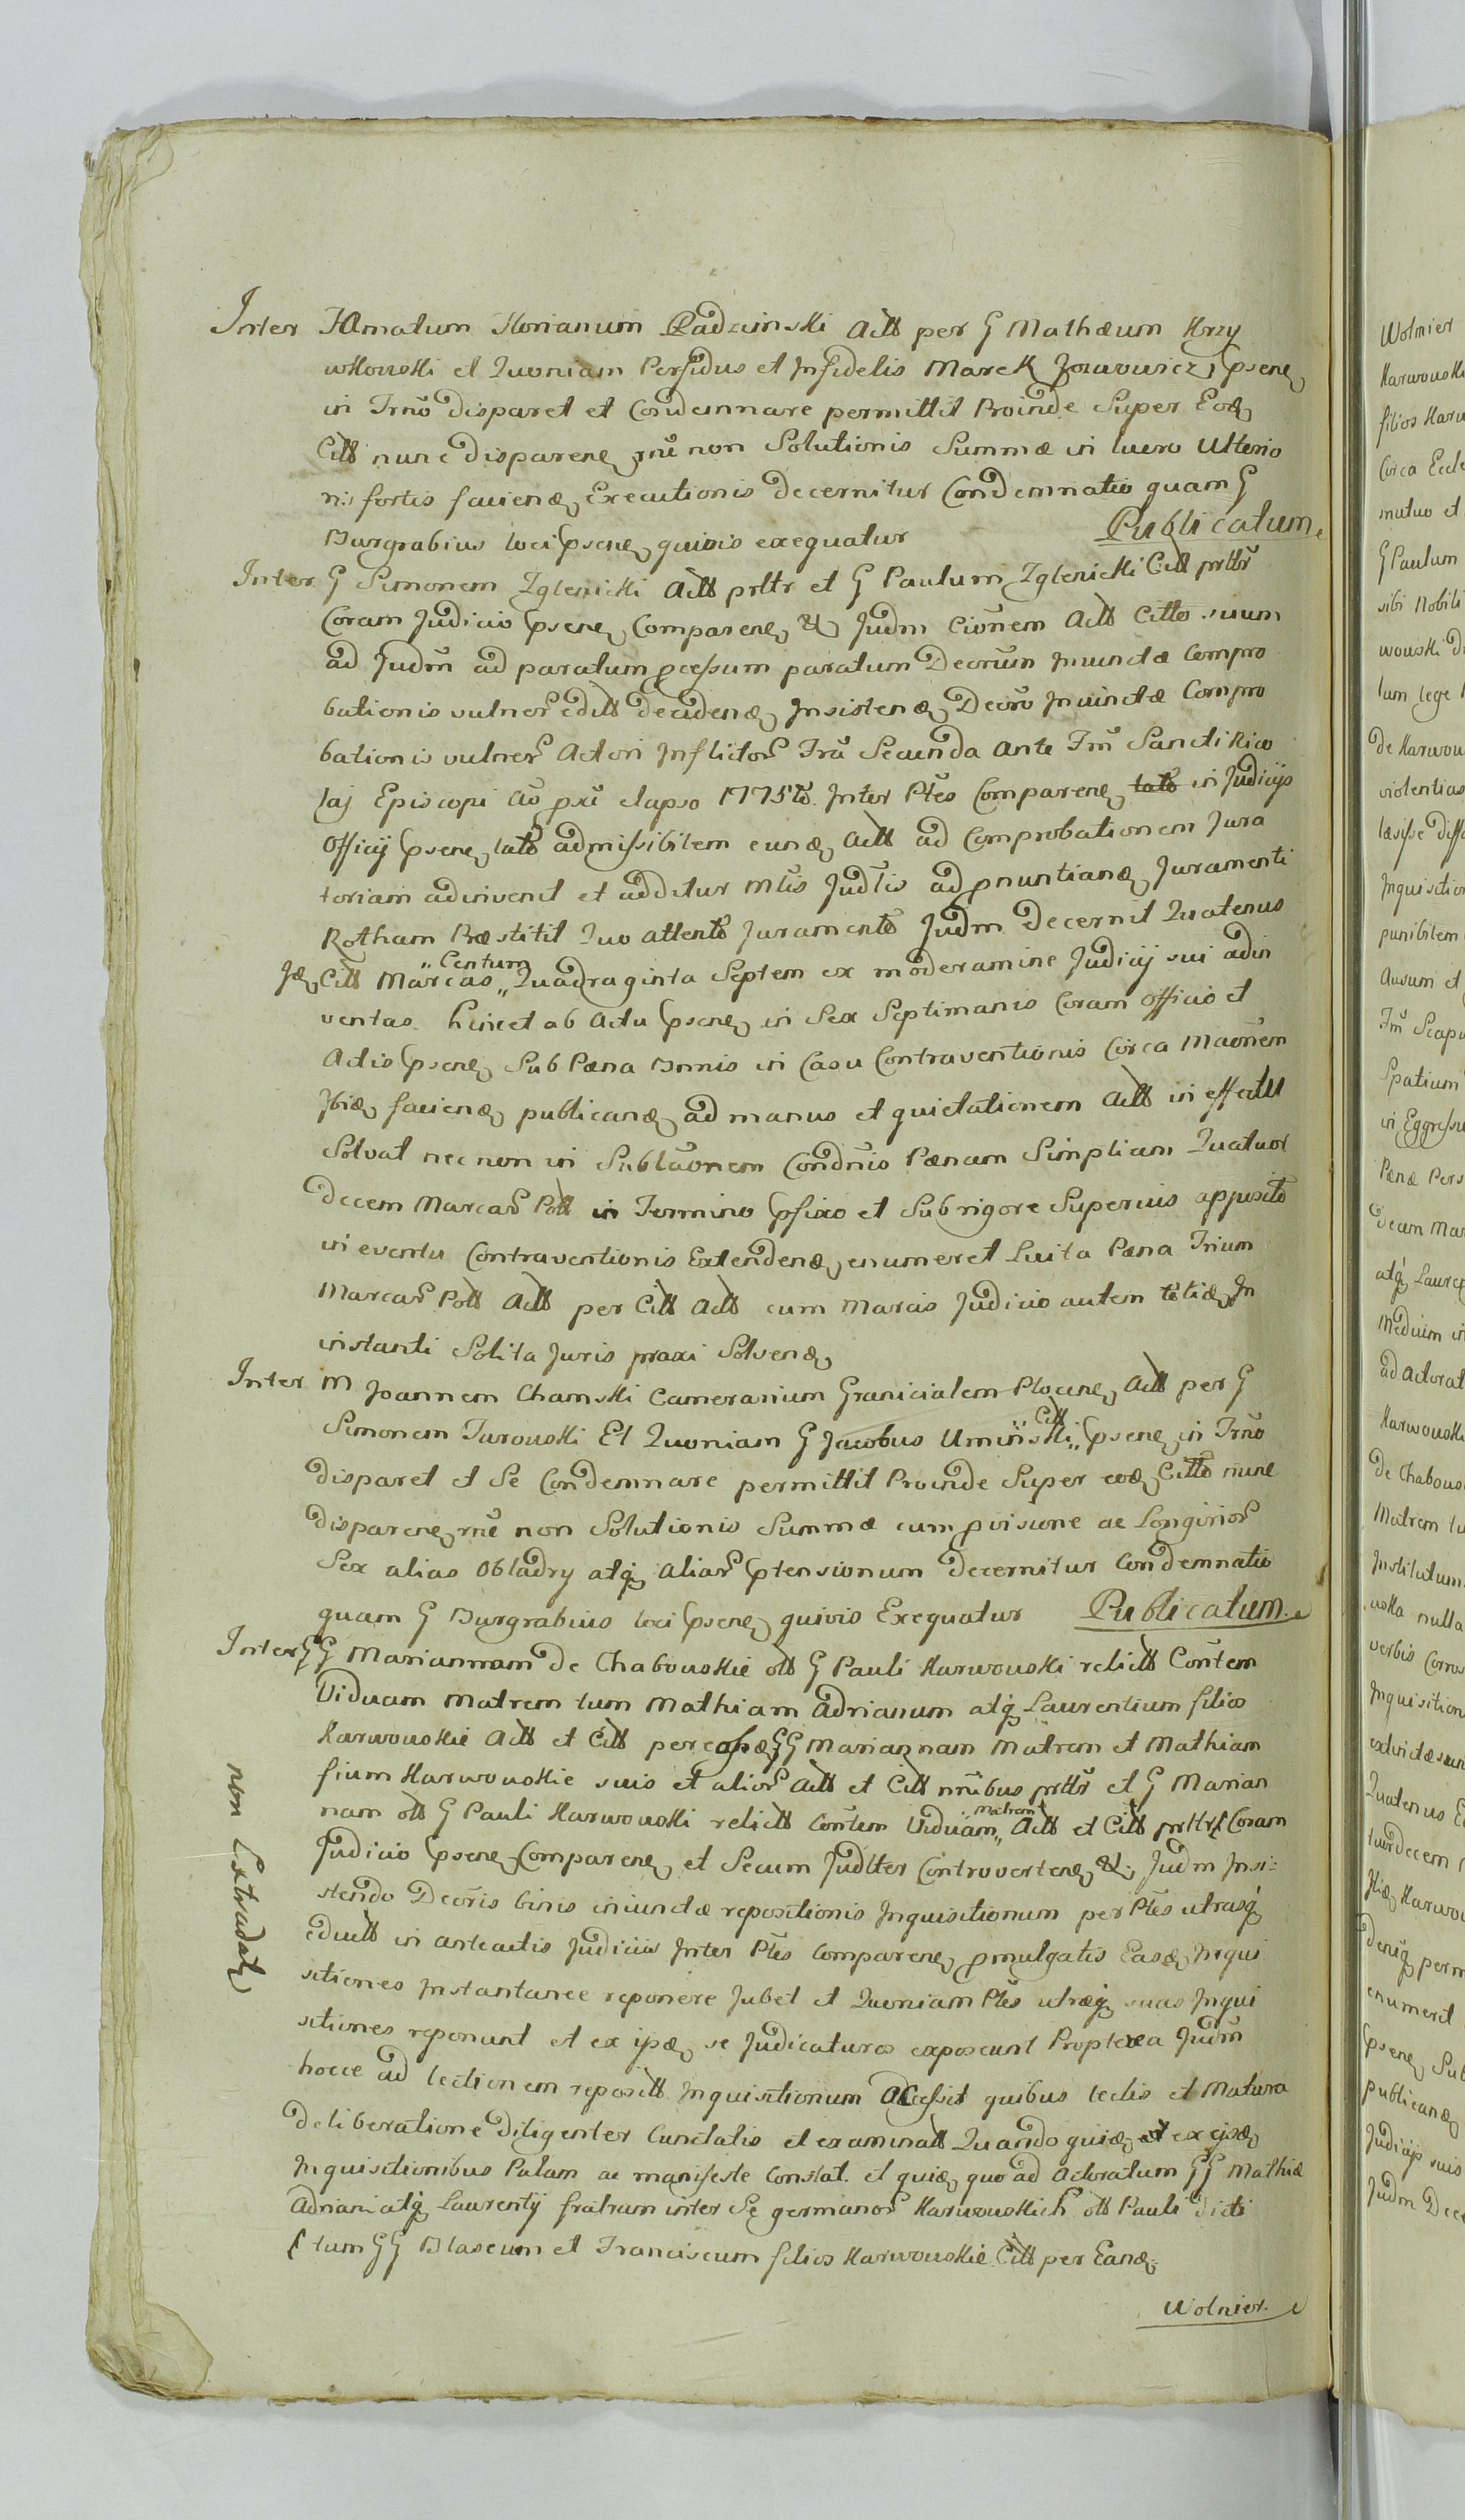 Inter Famatum Florianum Radziński Actt per G Mathæum Krzy
wkowski et Quoniam Perfidus et Infidelis Marek Jowowicz, psene
in Trno disparet et Condemnare permittit Proinde Super Eoq
Citt nunc disparene rne non Solutionis Summæ in lucro Ulterio
ris fortis faciena Executionis decernitur Condemnatio quam G
Burgrabius loci psene quivis exequatur Publicatum
Inter G Simonem Zglenicki Actt prttr et G Paulum Zglenicki Citt prttr
Coram Judicio psene Comparene & Judm Cionem Actt Citto suum
ad Judm ad paratum pcessum paratum Decrum Iniunctæ Compro
bationis vulner editt decidena Insistena Decro Iniunctæ Compro
bationis vulner Actori Inflictor Fra Secunda ante Fm Sancti Nico
laj Episcopi ao pxi elapso 1775to Inter Ptes Comparene lato in Judicijs
Officij psene lato admissibilem euna Actt ad Comprobationem Jura
toriam adinvenit et additur Mtis Judlis ad pnuntiana Juramenti
Rotham Præstitit Quo attento Juramento Judm Decernit Quatenus
Citt Marcas „Centum„ Quadraginta Septem ex moderamine Judicij sui adin
ventas hinc et ab Actu psene in Sex Septimanis Coram Officio et
Actis psene Sub Pæna Bnnis in Casu Contraventionis Circa Maonem
faciena publicana ad manus et quietationem Actt in effectu
Solvat nec non in Sublaonem Condnis Pænam Simplicem Quatuor
decem Marcar Pott in Termino pfixo et Sub rigore Superius apposito
in eventu Contraventionis Extendena enumeret Luita Pæna Trium
Marcar Pott Actt per Citt Actt cum Marcis Judicio autem In
instanti Solita Juris praxi Solvena
Inter M Joannem Chamski Camerarium Granicialem Plocene Actt per G
Simonem Turowski Et Quoniam G Jacobus Umiński „Citt„ psene in Trno
disparet et Se Condemnare permittit Proinde Super eoq Citto nunc
disparene rne non Solutionis Summæ cum pvisione ac Longirior
Sex alias Obladry atq aliar ptensionum decernitur Condemnatio
quam G Burgrabius loci psene quivis Exequatur Publicatum
Inter GG Mariannam de Chabowskie ott G Pauli Karwowski relictt Contem
Viduam Matrem tum Mathiam Adrianum atq Laurentium filios
Karwowskie Actt et Citt per GG Mariannam Matrem et Mathiam
fium Karwowskie suis et alior Actt et Citt nnibus prttr et G Marian
nam ott G Pauli Karwowski relictt Contem Viduam „Matrem„ Actt et Citt prttr Coram
Judicio psene Comparene et Secum Judlter Controvertene & Judm Insi
stendo Decris binis iniunctæ repositionis Inquisitionum per Ptes utrasq
eductt in anteactis Judiciis Inter Ptes Comparene pmulgatis Easq Inqui
sitiones Instantanee reponere Jubet et Quoniam Ptes utræq suas Inqui
sitiones reponunt et ex ipsæ se Judicaturos exposcunt Propterea Judm
hocce ad lectionem repositt Inquisitionum Accessit quibus lectis et Matura
deliberatione diligenter Cunctatis et examinatt Quando quiq et ex ejsæ
Inquisitionibus Palam ac manifeste Constat et quiq quo ad Actoratum GG Mathiæ
Adriani atq Laurentij fratrum inter Se germanor Karwowskich ott Pauli dicti
tum GG Blaseum et Franciscum filios Karwowskie Citt per Eanq
Wolnier
non Extradat
Wolnier
Karwowski
filios Karw
Circa Eccle
mutuo et
G Paulum
sibi Nobili
wowski D
tum lege
de Karwow
violentias
læsisse diff
Inquisition
punibilem
Ausum et
Spatium
in Egressu
Pænæ Pers
decem Mar
atq Lauren
Medium in
ad Actorat
Karwowski
de Chabows
Matrem tu
Institutum
uslla nulla
verbis Corros
Inquisition
Quatenus E
tuordecem
Karwow
deniq perm
enumerit
psene Sub
publicana
Judicijs suis
Judm Dece